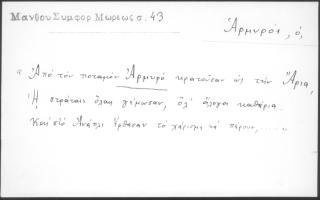 Μάνθου Συμφορ Μωρέως σ. 43
Ἁρμυρός, ὁ,
"Ἀπὸ τὸν ποταμὸν Ἁρμυρὸ κρατοῦσαν ὡς τὴν Ἄρια,
Ἡ στράταις ὅλαι γέμωσαν, ὅλ' ἄλογα καθάρια.
Καὶ στὸ Ἀνάπλι ἔφθασαν τὸ χάρισμα νὰ πάρουν, ....."